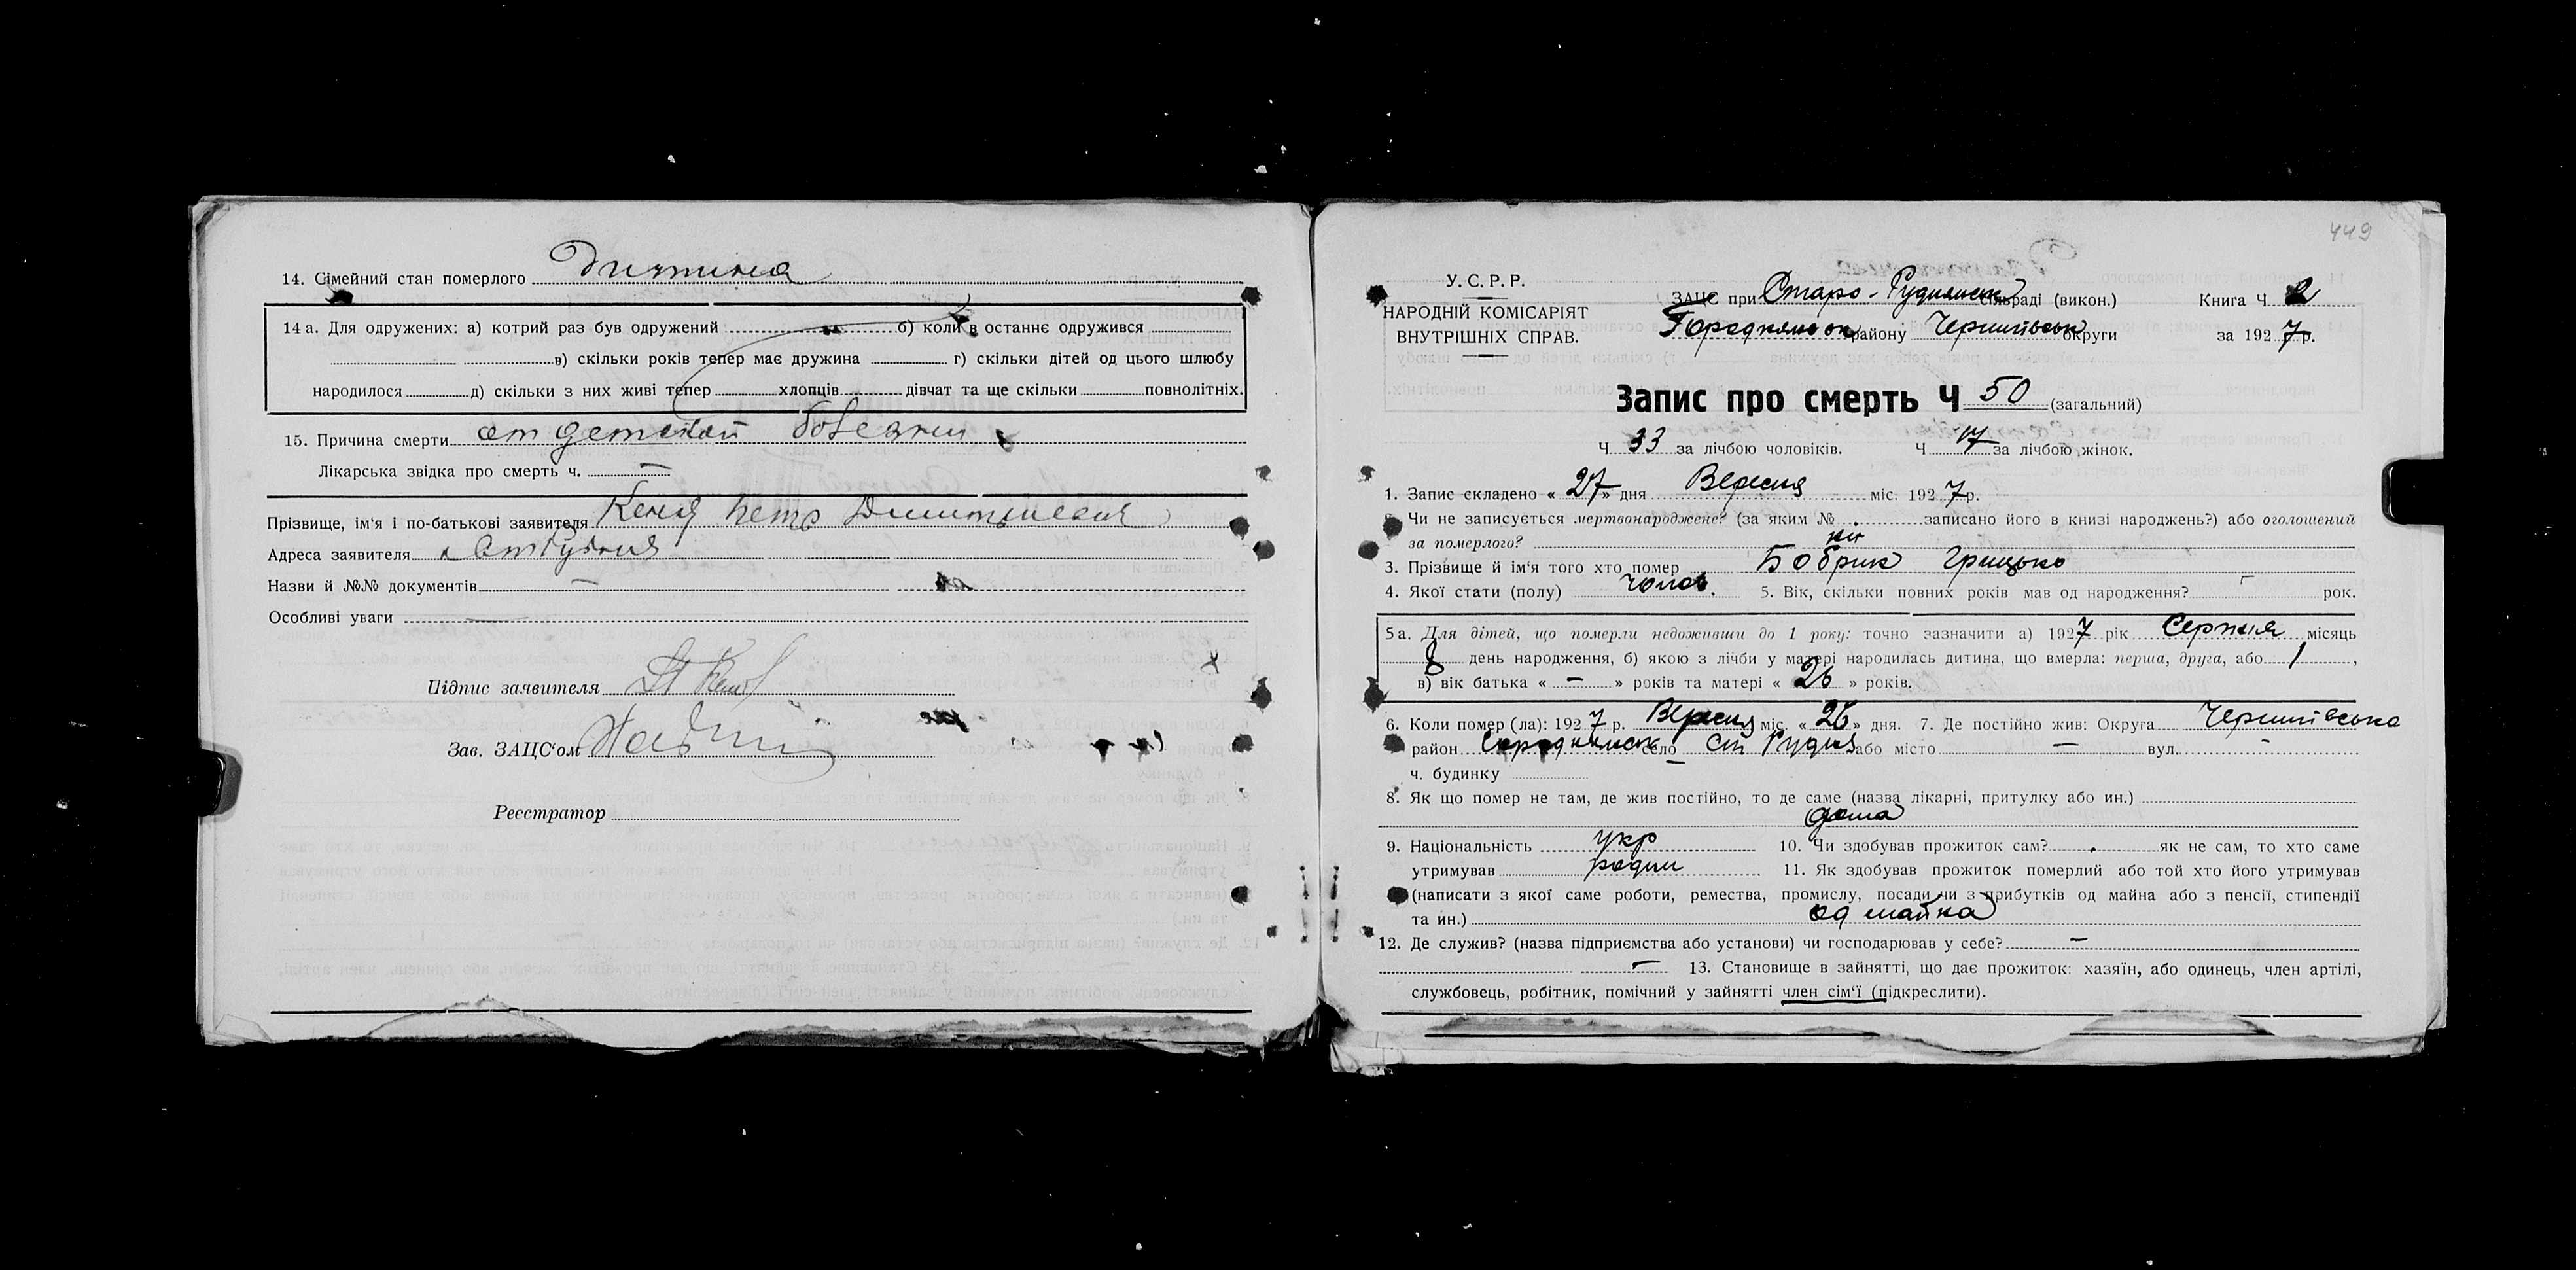 14. Сімейний стан померлого Дитина
14 а. Для одружених: а) котрий раз був одружений б) коли в останнє одружився
в) скільки років тепер має дружина г) скільки дітей од цього шлюбу
народилося д) скільки з них живі тепер хлопців дівчат та ще скільки повнолітніх.
15. Причина смерти от детской болезни
Лікарська звідка про смерть ч. —
Прізвище, ім'я і по-батькові заявителя Петр
Адреса заявителя
Назви й №№ документів —
Особливі уваги —
Підпис заявителя
Зав. ЗАЦС'ом
Реєстратор
449
У. С. Р. Р.
НАРОДНІЙ КОМІСАРІЯТ
ВНУТРІШНІХ СПРАВ.
ЗАЦС при Старо-Руднянськ сільраді (викон.) Книга Ч 2
Городнянськ району Чернигівськ округи за 1927 р.
Запис про смерть Ч 50 (загальний)
Ч 33 за лічбою чоловіків. Ч 17 за лічбою жінок.
1. Запис складено « 27 » дня Вересня міс. 1927 р.
Чи не записується мертвонароджене? (за яким № записано його в книзі народжень?) або оголошений
за померлого? ні
3. Прізвище й ім'я того хто помер Бобрик Грицько
4. Якої стати (полу) чолов. 5. Вік, скільки повних років мав од народження? — рок.
5 а. Для дітей, що померли недоживши до 1 року: точно зазначити а) 1927 рік Серпня місяць
8 день народження, б) якою з лічби у матері народилась дитина, що вмерла: перша, друга, або 1 ,
в) вік батька « — » років та матері « 26 » років.
6. Коли помер (ла): 1927 р. Вересня міс. « 26 » дня. 7. Де постійно жив: Округа Чернигівська
район Городнянськ село Ст Рудня або місто — вул. —
ч. будинку
8. Як що помер не там, де жив постійно, то де саме (назва лікарні, притулку або ин.)
дома
9. Національність укр 10. Чи здобував прожиток сам? як не сам, то хто саме
утримував родин 11. Як здобував прожиток померлий або той хто його утримував
(написати з якої саме роботи, ремества, промислу, посади чи з прибутків од майна або з пенсії, стипендії
та ин.) од майна
12. Де служив? (назва підприємства або установи) чи господарював у себе? —
— 13. Становище в зайнятті, що дає прожиток: хазяїн, або одинець, член артілі,
службовець, робітник, помічний у зайнятті член сім'ї (підкреслити).